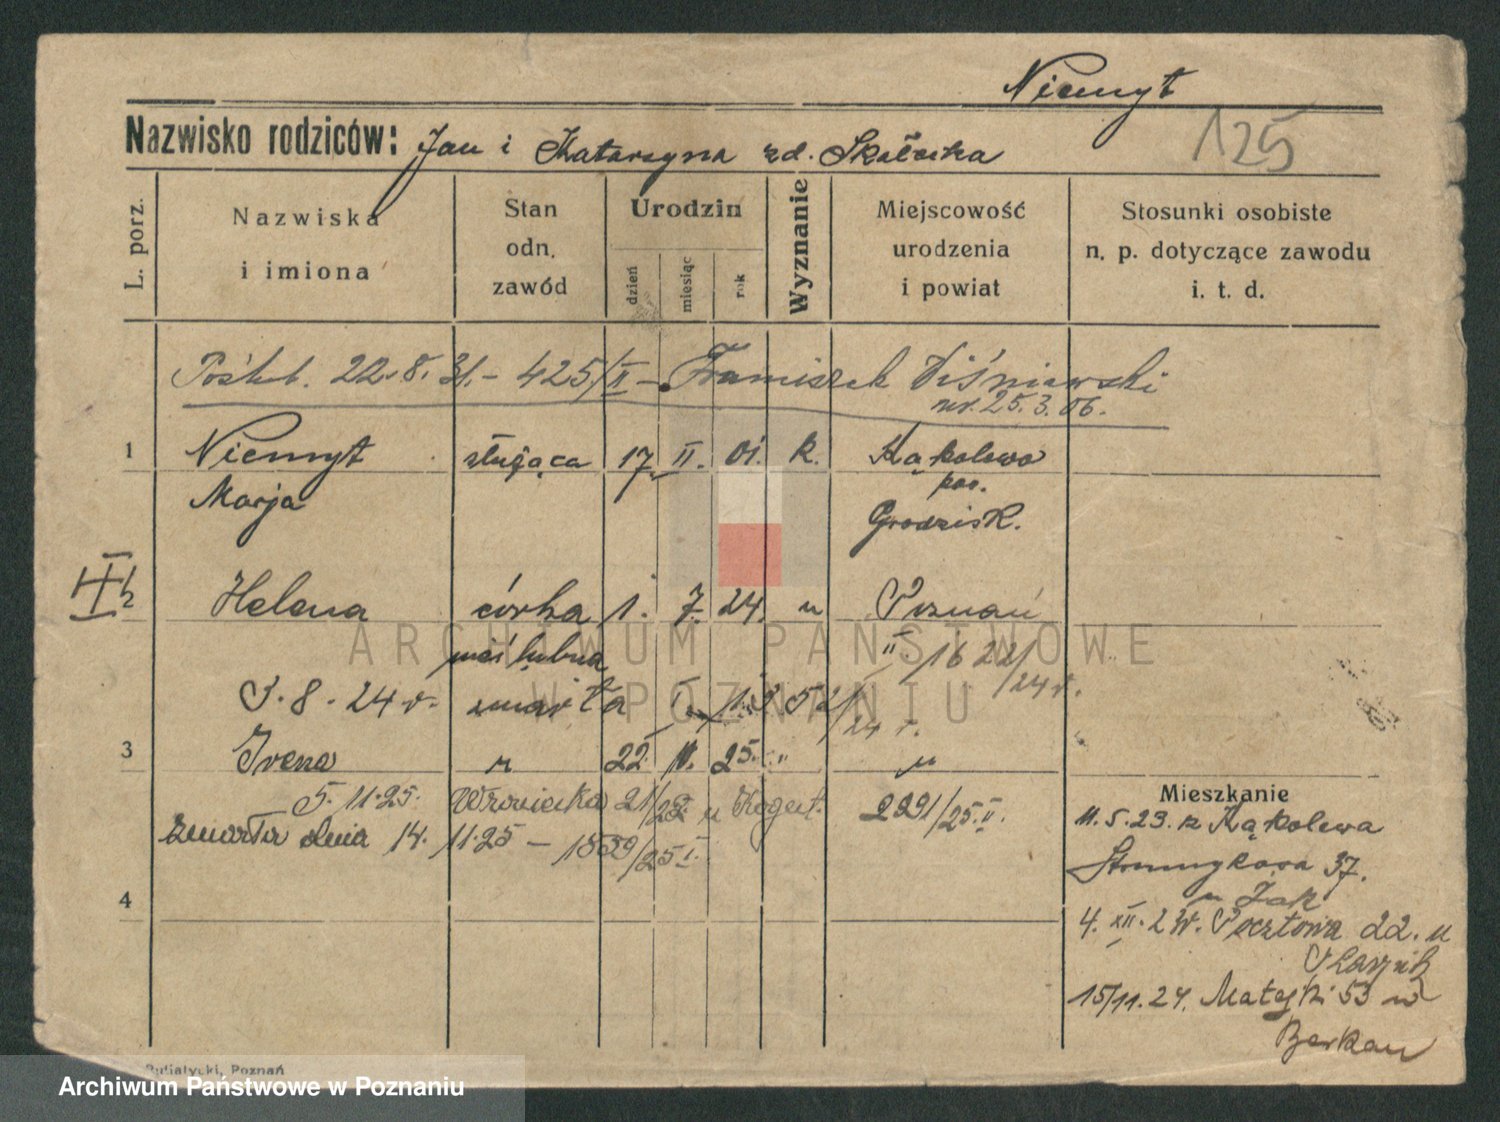 Niemyt
125
Nazwisko rodziców: Jan i Katarzyna zd.
L. porz.
Nazwiska i imiona
Stan odn. zawód
Urodzin
dzień miesiąc rok
Wyznanie
Miejscowość urodzenia i powiat
Stosunki osobiste n. p. dotyczące zawodu i. t. d.
22.8.31. – 425/II – Franciszek Wiśniewski
ur. 25.3.06.
1 Niemyt służąca 17. II. 01. k. Kąkolewo
Marja pow.
Grodzisk.
2 Helena córka 1. 7. 24. " Poznań
nieślubna II 1622/24 r.
3.8.24 r. zmarła I
24 r.
3 Irena " 22. 25. " "
5.11.25. 2291/25 II.
zmarła dnia 14.11.25 – /25 I.
4
Mieszkanie
11.5.23. z Kąkolewa
Strumykowa 37.
u Jak
4. XII. Pocztowa 22. u
15/11.24. Matejki 53 u
Berkan
, Poznań
ARCHIWUM PAŃSTWOWE
W POZNANIU
Archiwum Państwowe w Poznaniu